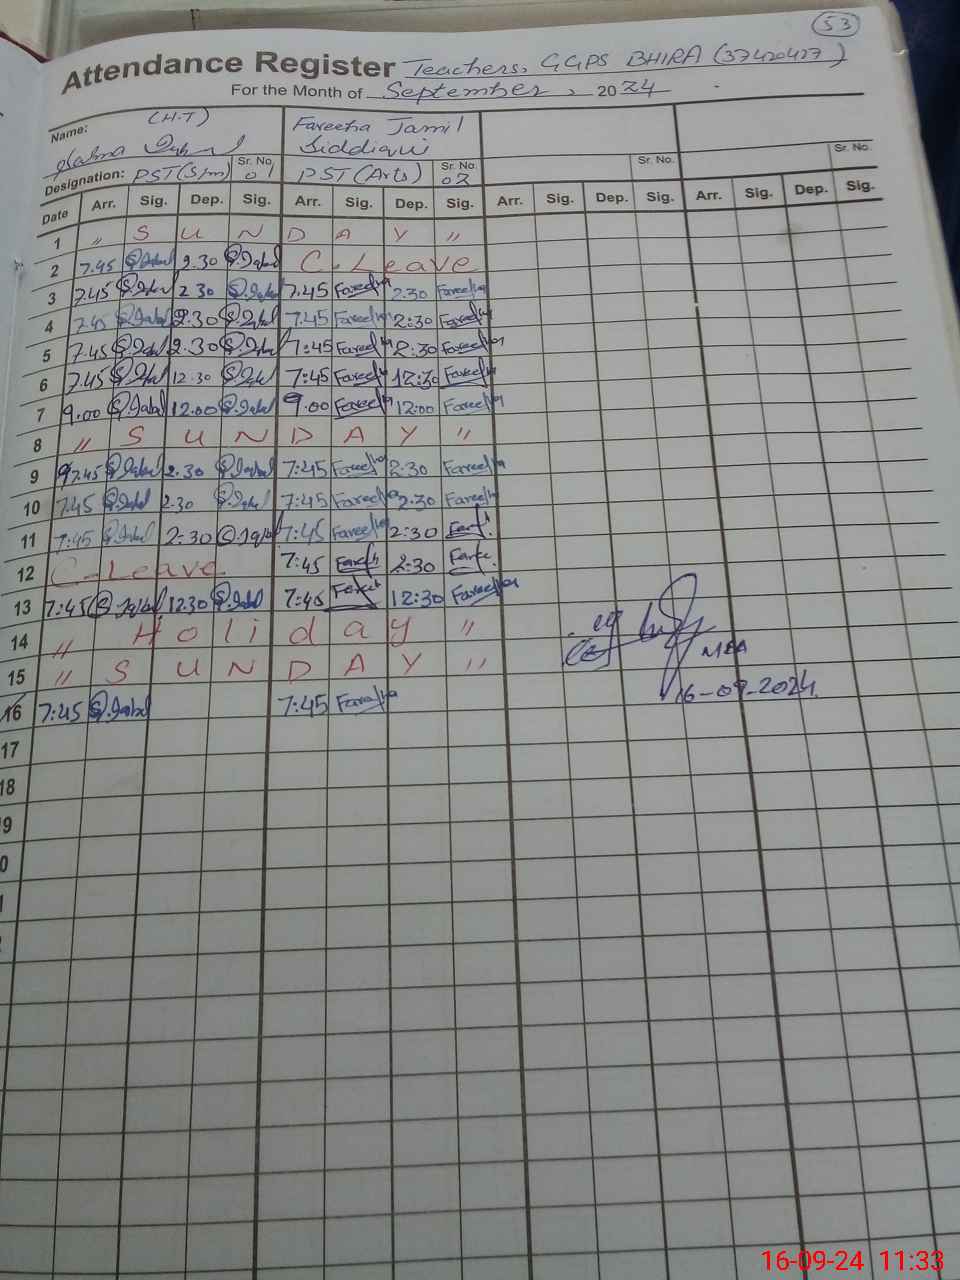 53
Attendance Register Teachers, GGPS BHIRA (37420427)
For the Month of September, 2024
Name: (H.T) Fareeha Jamil
Salma Iqbal Siddiqui
Designation: PST(S/m) Sr. No. 01 PST(Arts) Sr. No. 02 Sr. No. Sr. No.
Date Arr. Sig. Dep. Sig. Arr. Sig. Dep. Sig. Arr. Sig. Dep. Sig. Arr. Sig. Dep. Sig.
1 " S U N D A Y "
2 7.45 S.Iqbal 2.30 S.Iqbal C. Leave
3 7.45 S.Iqbal 2 30 S.Iqbal 7.45 Fareeha 2:30 Fareeha
4 7.45 S.Iqbal 2.30 S.Iqbal 7.45 Fareeha 2:30 Fareeha
5 7.45 S.Iqbal 2.30 S.Iqbal 7:45 Fareeha 2:30 Fareeha
6 7.45 S.Iqbal 12.30 S.Iqbal 7:45 Fareeha 12:30 Fareeha
7 9.00 S.Iqbal 12.00 S.Iqbal 9.00 Fareeha 12:00 Fareeha
8 " S U N D A Y "
9 7.45 S.Iqbal 2.30 S.Iqbal 7:45 Fareeha 2:30 Fareeha
10 7.45 S.Iqbal 2.30 S.Iqbal 7:45 Fareeha 2:30 Fareeha
11 7:45 S.Iqbal 2:30 S.Iqbal 7:45 Fareeha 2:30
12 C. Leave 7:45 2:30
13 7:45 S.Iqbal 12.30 S.Iqbal 7:45 12:30 Fareeha
14 " H o l i d a y "
15 " S U N D A Y "
MEA
16-09-2024
16 7:45 S.Iqbal 7:45 Fareeha
17
18
9
0
16-09-24 11:33